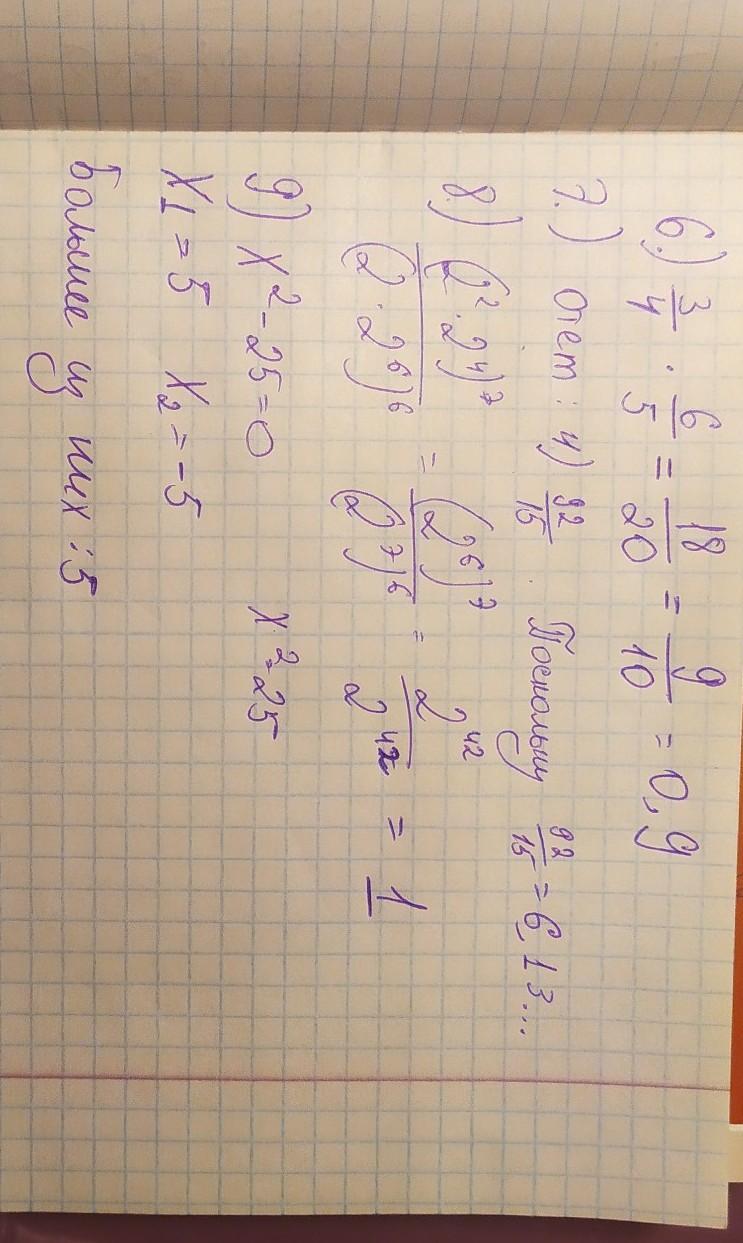 6.) 3/4 · 6/5 = 18/20 = 9/10 = 0,9
7.) Ответ: 4) 92/15. Поскольку 92/15 = 6,13...
8.) (2² · 2⁴)⁷/(2 · 2⁶)⁶ = (2⁶)⁷/(2⁷)⁶ = 2⁴²/2⁴² = 1
9) x² - 25 = 0 x² = 25
x₁ = 5 x₂ = -5
Большее из них: 5